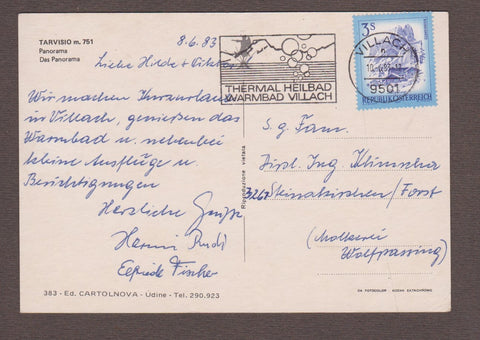 TARVISIO m. 751
Panorama
Das Panorama
8.6.83
Liebe Hilde +
Wir machen Kurzurlaub
in Villach, genießen das
Warmbad u. nebenbei
kleine Ausflüge u.
Besichtigungen
Herzliche Grüße
Hermi Rudi
Elfriede Fischer
383 - Ed. CARTOLNOVA - Udine - Tel. 290.923
Riproduzione vietata
THERMAL HEILBAD
WARMBAD VILLACH
VILLACH
9501
3S
REPUBLIK ÖSTERREICH
S.g. Fam.
Dipl. Ing. Klimscha
3261 Steinakirchen/Forst
(Molkerei
Wolfpassing)
DA FOTOCOLOR - KODAK EKTACHROME